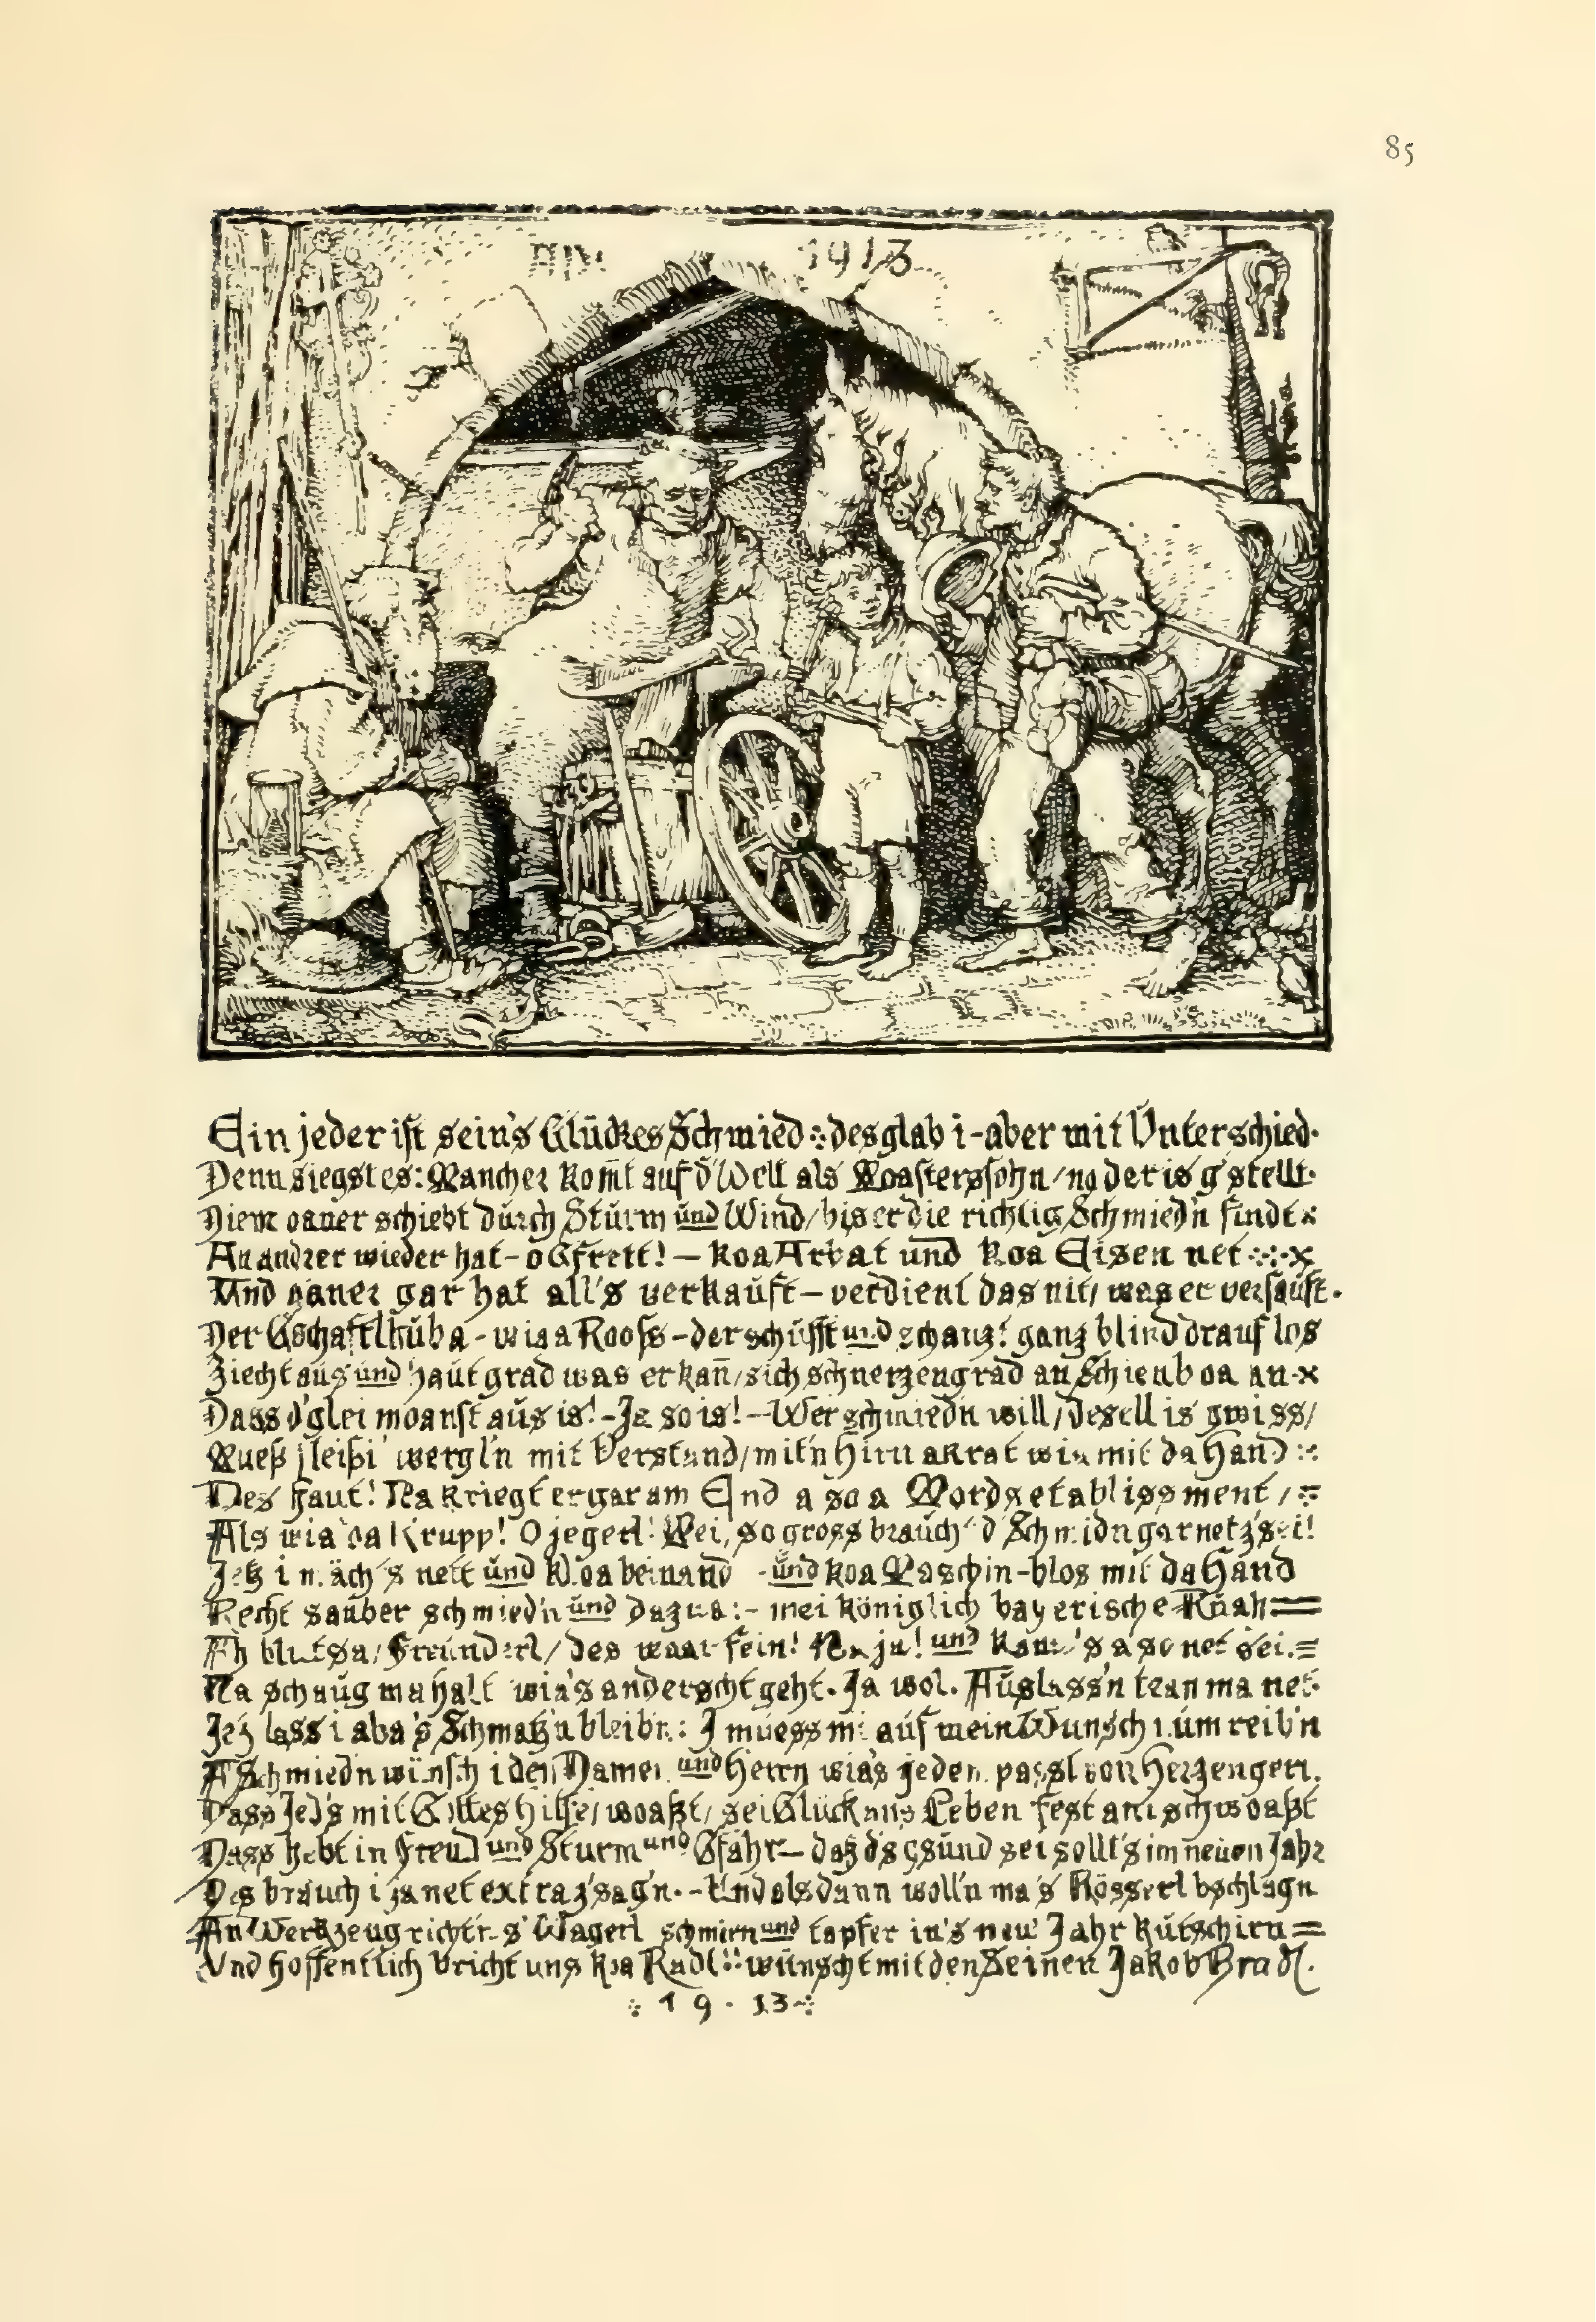 85
1913
Ein jeder ist sein's Glückes Schmied ⁘ des glab i - aber mit Unterschied.
Denn siegst es: Mancher kom̄t auf d' Welt als Moasterssohn / na der is g'stellt.
Diem oaner schiebt durch Sturm und Wind / bis er die richtig Schmied'n findt ×
An andrer wieder hat - o Gfrett! — koa Arbat und koa Eisen net ⁘ ⁘ ×
Und oaner gar hat all's verkauft — verdient das nit / was er versauft.
Der Gschaftlhuba - wia a Rooss - der schufft und schanzt ganz blind drauf los
Ziecht aus und haut grad was er kan̄ / sich schnerzengrad an Schienboa an - ×
Dass d' glei moanst aus is! - Ja so is! - Wer schmiedn will / desell is gwiss /
Mueß fleißi wergl'n mit Verstand / mit'n Hirn akrat wia mit da Hand ⁘
Des haut! Na kriegt er gar am End a so a Mordsetablissment /
Als wia da Krupp! O jegerl! Nei, so gross brauch' d' Schmidn gar net z'sei!
Jetz i mächt's nett und kloa beinand - und koa Maschin - blos mit da Hand
Recht sauber schmied'n und dazua: - mei königlich bayerische Ruah =
Ah bluatsa / Freunderl / des waar fein! Na ja! und kann's a so net sei. =
Na schaug ma halt wia's anderscht geht. Ja wol. Auslass'n tean ma net.
Jez lass i aba's Schmatz'n bleib'n: I muess mi auf mein Wunsch r um reib'n
A Schmiedn wünsch i den Damen und Herrn wia's jeden passt von Herzen gern.
Dass Jed's mit Gottes Hilfe / woaßt / sei Glück ans Leben fest anischwoaßt
Dass hebt in Freud und Sturm und Gfahr — daß d's gsund sei sollt's im neuen Jahr
Des brauch i ja net extra z'sag'n. - Und alsdann woll'n ma's Rösserl bschlagn
An Werkzeug richt'n s' Wagerl schmirn und tapfer in's neu' Jahr kutschirn =
Und hoffentlich bricht uns koa Radl ⁘ wünscht mit den Seinen Jakob Bradl.
⁘ 19 · 13 ⁘